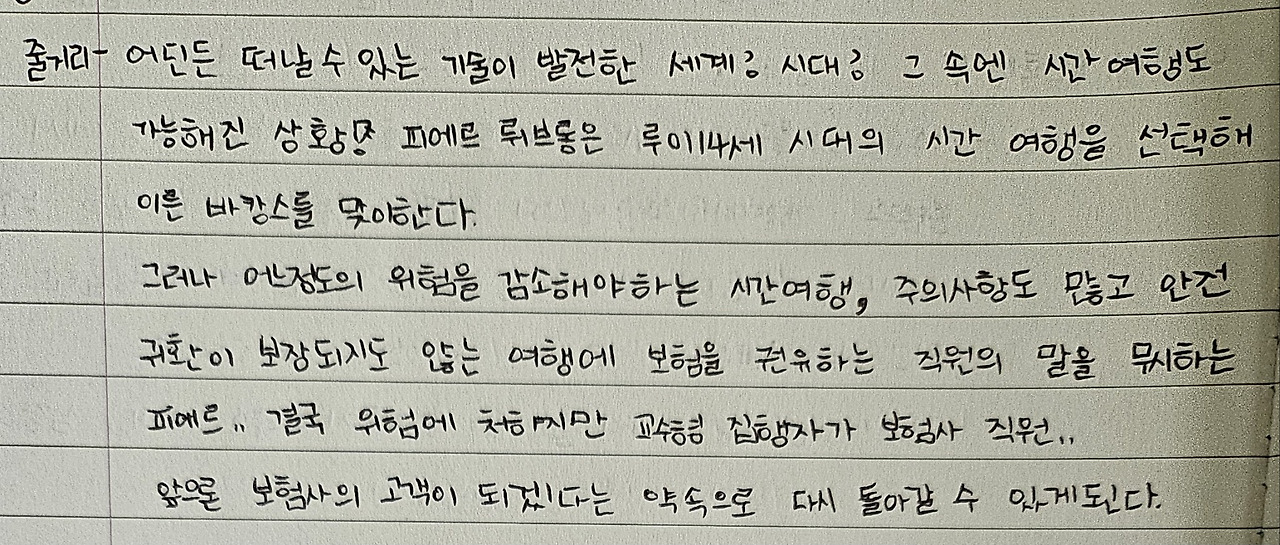 줄거리- 어딘든 떠날 수 있는 기술이 발전한 세계; 시대; 그 속엔 시간여행도
가능해진 상황! 피에르 뤼브롱은 루이14세 시대의 시간 여행을 선택해
이른 바캉스를 맞이한다.
그러나 어느정도의 위험을 감소해야하는 시간여행, 주의사항도 많고 안전
귀환이 보장되지도 않는 여행에 보험을 권유하는 직원의 말을 무시하는
피에르.. 결국 위험에 처하지만 교수형 집행자가 보험사 직원..
앞으론 보험사의 고객이 되겠다는 약속으로 다시 돌아갈 수 있게된다.